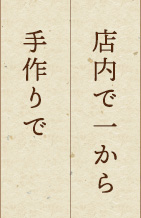 店内で一から
手作りで